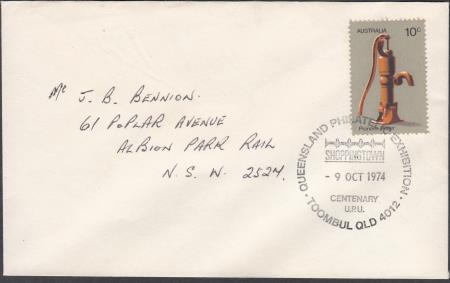 AUSTRALIA 10c
Pioneer Life
Mr J. B. BENNION.
61 POPLAR AVENUE
ALBION PARK RAIL
N. S. W. 2527.
QUEENSLAND PHILATELIC EXHIBITION
SHOPPINGTOWN
- 9 OCT 1974
CENTENARY
U.P.U.
TOOMBUL QLD 4012